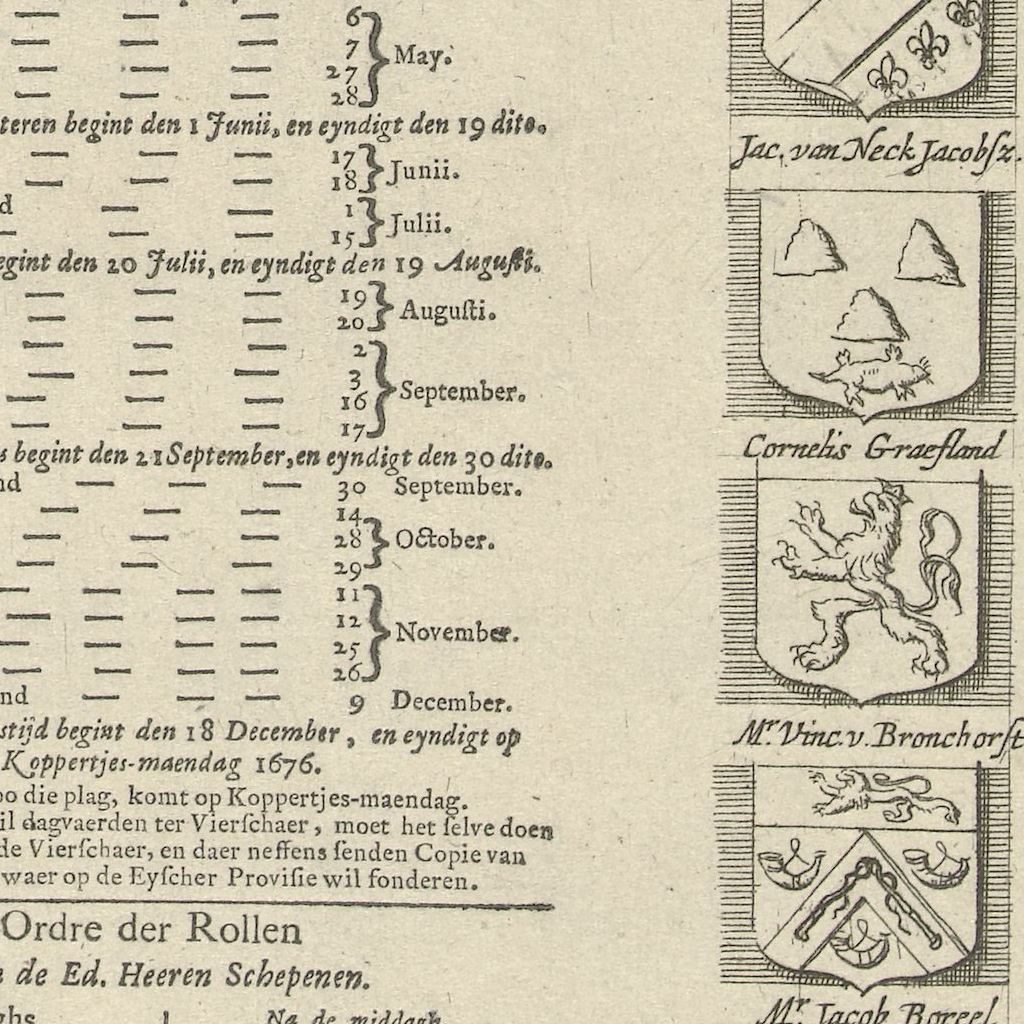 6
7
27
28
May.
teren begint den 1 Junii, en eyndigt den 19 dito.
17
18
Junii.
d
1
15
Julii.
egint den 20 Julii, en eyndigt den 19 Augusti.
19
20
Auguſti.
2
3
16
17
September.
s begint den 21 September, en eyndigt den 30 dito.
nd 30 September.
14
28
29
October.
11
12
25
26
November.
nd 9 December.
stijd begint den 18 December, en eyndigt op
Koppertjes-maendag 1676.
oo die plag, komt op Koppertjes-maendag.
il dagvaerden ter Vierſchaer, moet het ſelve doen
de Vierſchaer, en daer neffens ſenden Copie van
waer op de Eyſcher Proviſie wil fonderen.
Ordre der Rollen
de Ed. Heeren Schepenen.
ghs 1 Na de middagh
Jac. van Neck Jacobſz.
Cornelis Graeſland
Mr. Vinc. v. Bronchorſt
Mr. Jacob Boreel